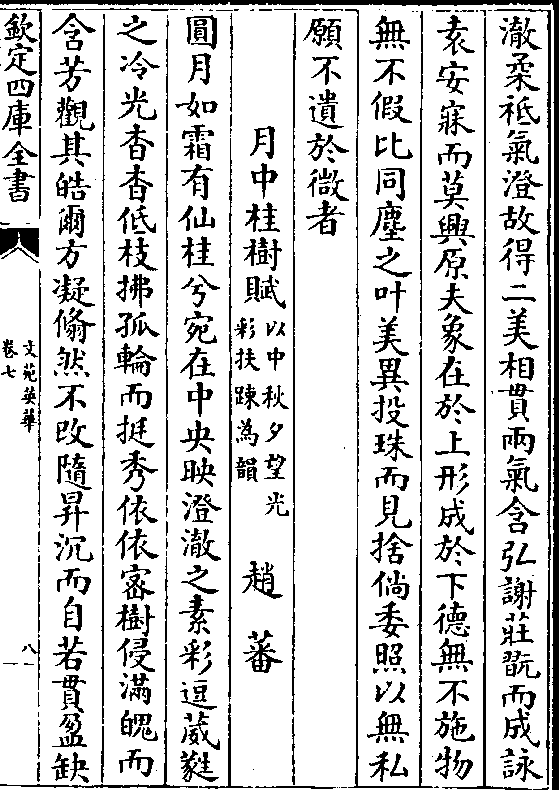 澈柔祇氣澄故得二美相貫兩氣含弘謝莊翫而成詠
袁安寐而莫興原夫象在於上形成於下德無不施物
無不假比同塵之叶美異投珠而見捨倘委照以無私
願不遺於微者
月中桂樹賦 以中秋夕望光彩扶踈為韻 趙蕃
圓月如霜有仙桂兮宛在中央映澄澈之素彩逗葳蕤
之冷光杳杳低枝拂孤輪而挺秀依依密樹侵滿魄而
含芳觀其皓爾方凝翛然不改隨昇沉而自若貫盈缺
欽定四庫全書
文苑英華
卷七
八